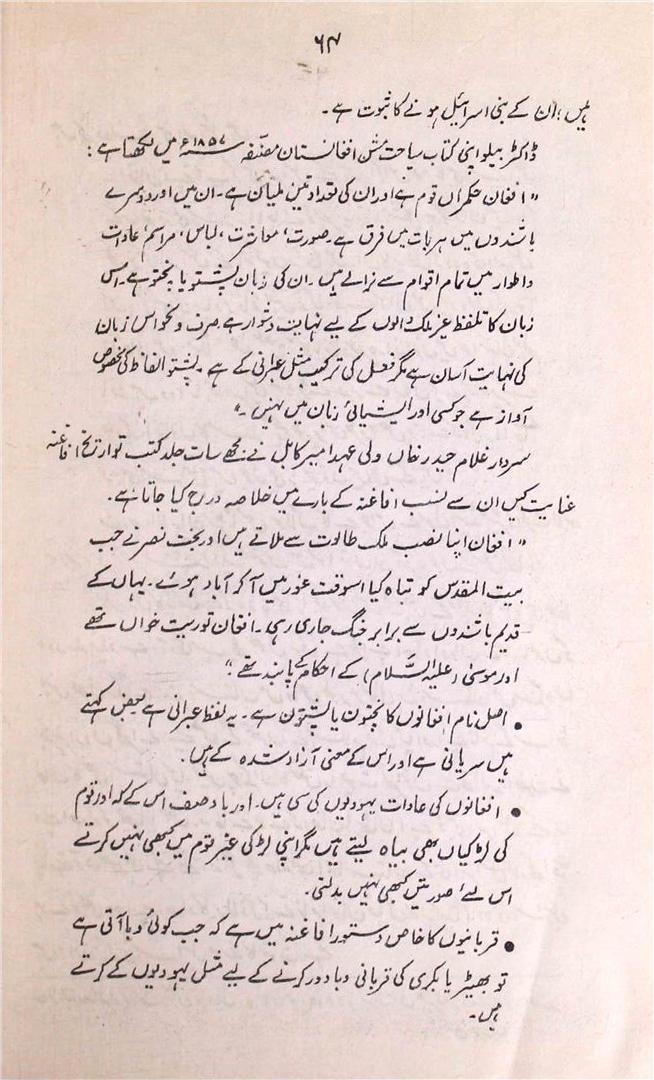 ۶۴
ہیں، اُن کے بنی اسرائیل ہونے کا ثبوت ہے۔
ڈاکٹر بیلو اپنی کتاب سیاحت مشن افغانستان مصنّفہ ۱۸۵۷ء میں لکھتا ہے:
"افغان حکمراں قوم ہے اور ان کی تعداد تین ملیان ہے۔ ان میں اور دوسرے
باشندوں میں ہر بات میں فرق ہے۔ صورت، معاشرت، لباس، مراسم، عادات
واطوار میں تمام اقوام سے نرالے ہیں۔ ان کی زبان پشتو یا پختو ہے۔ اس
زبان کا تلفظ غیر ملک والوں کے لیے نہایت دشوار ہے صرف و نحو اس زبان
کی نہایت آسان ہے مگر فعل کی ترکیب مثل عبرانی کے ہے۔ پشتو الفاظ کی مخصوص
آواز ہے جو کسی اور ایشیائی زبان میں نہیں۔"
سردار غلام حیدر خاں ولی عہد امیر کابل نے مجھے سات جلد کتب تواریخ افاغنہ
عنایت کیں ان سے نسب افاغنہ کے بارے میں خلاصہ درج کیا جاتا ہے۔
"افغان اپنا نصب ملک طالوت سے ملاتے ہیں اور بخت نصر نے جب
بیت المقدس کو تباہ کیا اسوقت غور میں آ کر آباد ہوئے۔ یہاں کے
قدیم باشندوں سے برابر جنگ جاری رہی۔ افغان توریت خواں تھے
اور موسیٰ (علیہ السَّلام) کے احکام کے پابند تھے۔"
• اصل نام افغانوں کا پختون یا پشتون ہے۔ یہ لفظ عبرانی ہے بعض کہتے
ہیں سریانی ہے اور اس کے معنی آزاد شدہ کے ہیں۔
• افغانوں کی عادات یہودیوں کی سی ہیں۔ اور باوصف اس کے کہ اور قوم
کی لڑکیاں بھی بیاہ لیتے ہیں مگر اپنی لڑکی غیر قوم میں کبھی نہیں کرتے
اس لیے صورتیں کبھی نہیں بدلتی۔
• قربانیوں کا خاص دستور افاغنہ میں ہے کہ جب کوئی وبا آتی ہے
تو بھیڑ یا بکری کی قربانی وبا دور کرنے کے لیے مثل یہودیوں کے کرتے
ہیں۔